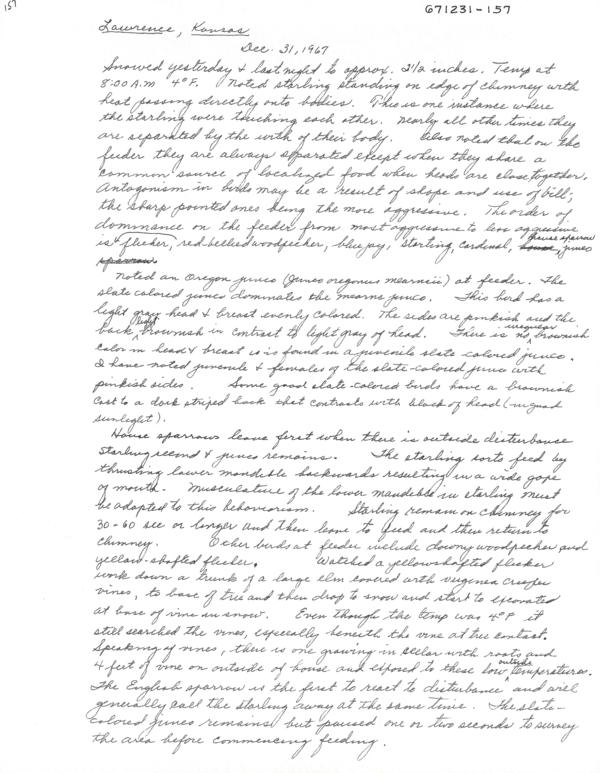 157
671231-157
Lawrence, Kansas
Dec. 31, 1967
Snowed yesterday & last night to approx. 2 1/2 inches. Temp at
8:00 A.M 4°F. Noted starling standing on edge of chimney with
heat passing directly onto bodies. This is one instance where
the starling were touching each other. Nearly all other times they
are separated by the with of their body. Also noted that on the
feeder they are always separated except when they share a
common source of localized food when heads are close together.
Antagonism in birds may be a result of shape and use of bill;
the sharp pointed ones being the more aggressive. The order of
dominance on the feeder from most aggressive to less aggressive
is flicker, red bellied woodpecker, bluejay, starling, cardinal, house sparrow, junco
sparrow.
Noted an Oregon junco (Junco oreganus mearnsii) at feeder. The
slate colored junco dominates the mearns junco. This bird has a
light gray head & breast evenly colored. The sides are pinkish and the
back light brownish in contrast to light gray of head. There is no irregular brownish
color in head & breast as is found in a juvenile slate-colored junco.
I have noted juvenile & females of the slate-colored junco with
pinkish sides. Some good slate-colored birds have a brownish
cast to a dark striped back that contrasts with black of head (in good
sunlight).
House sparrows leave first when there is outside disturbance
starling second & junco remains. The starling sorts feed by
thrusting lower mandible backwards resulting in a wide gape
of mouth. Musculature of the lower mandible in starling must
be adapted to this behaviorism. Starling remain on chimney for
30-60 sec or longer and then leave to feed and then return to
chimney. Other birds at feeder include downy woodpecker and
yellow-shafted flicker. Watched a yellowshafted flicker
work down a trunk of a large elm covered with virginea creeper
vines, to base of tree and then drop to snow and start to excavated
at base of vine in snow. Even though the temp was 4°F it
still searched the vines, especially beneath the vine at tree contact.
Speaking of vines, there is one growing in cellar with roots and
4 feet of vine on outside of house and exposed to these low outside temperatures.
The English sparrow is the first to react to disturbance and will
generally call the starling away at the same time. The slate-
colored junco remains but paused one or two seconds to survey
the area before commencing feeding.